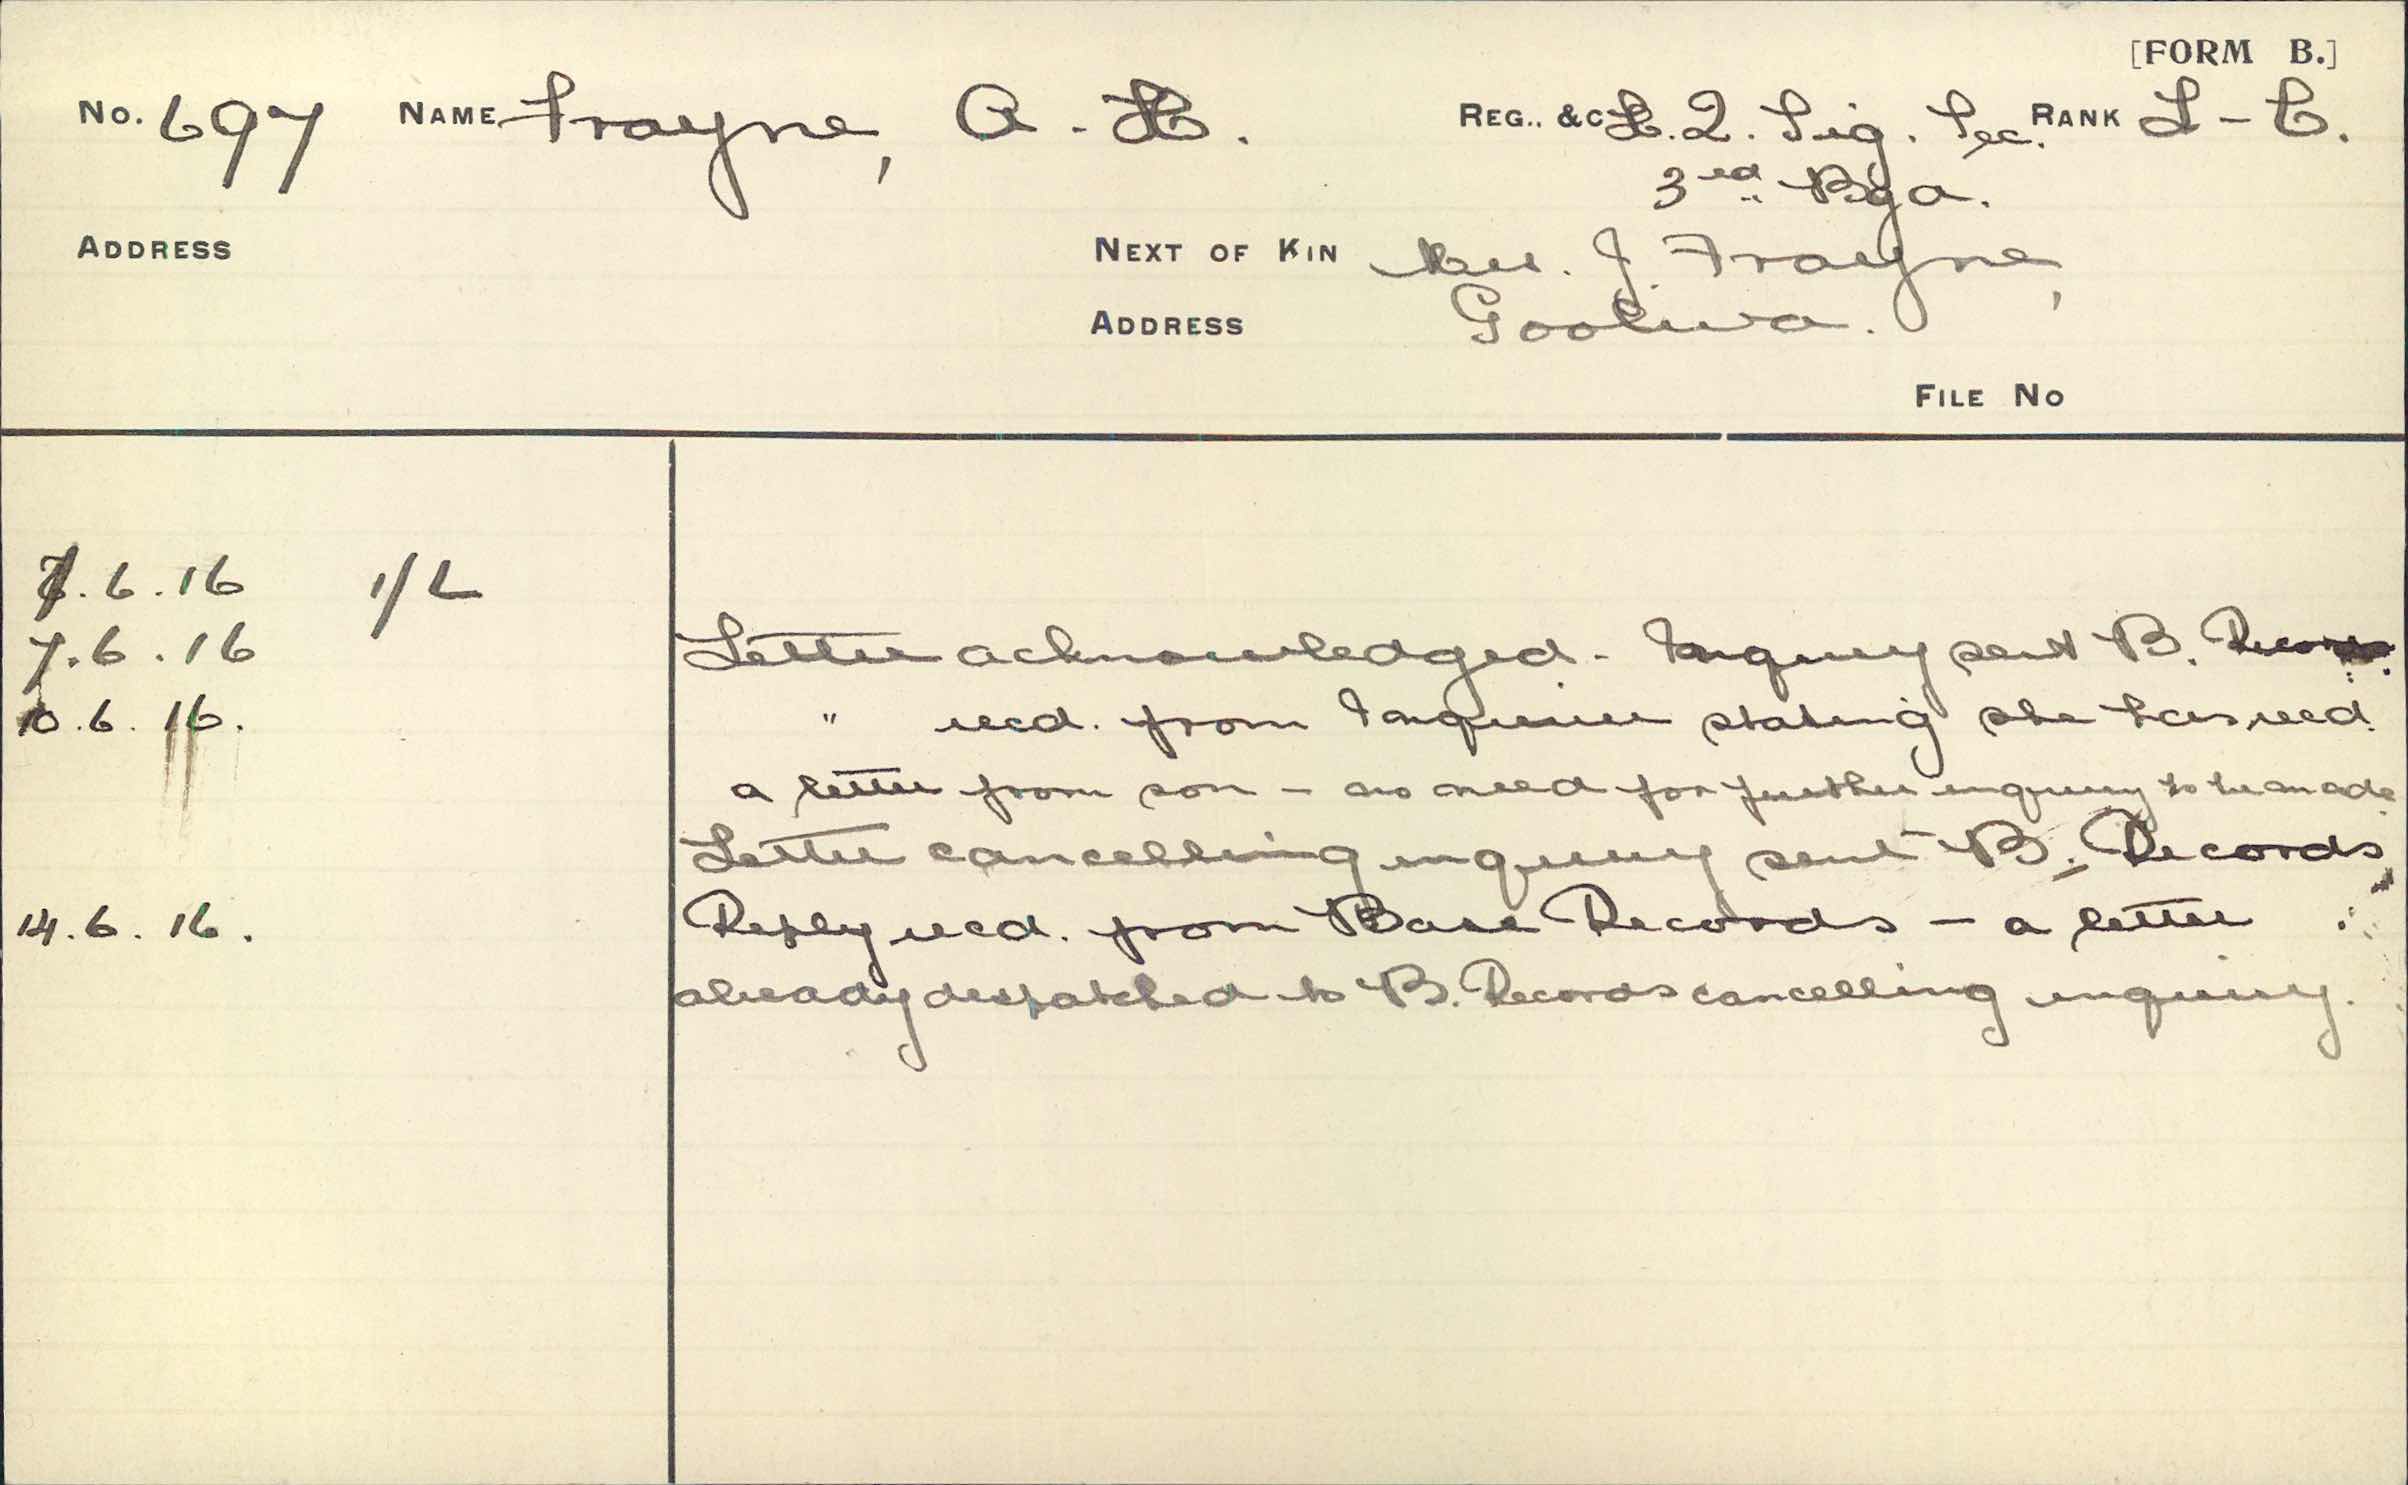 [FORM B.]
No. 697 NAME Frayne, A. H. REG., &C H.Q. Sig. Sec. RANK L-C.
3rd Bga.
ADDRESS NEXT OF KIN Mrs. J. Frayne,
ADDRESS Goolwa.
FILE NO
.6.16 1/L
7.6.16 Letter acknowledged. Inquiry sent B. Records.
10.6.16. " recd. from Inquirer stating she has recd.
a letter from son - no need for further inquiry to be made
Letter cancelling inquiry sent B. Records
14.6.16. Reply recd. from Base Records - a letter
already despatched to B. Records cancelling inquiry.